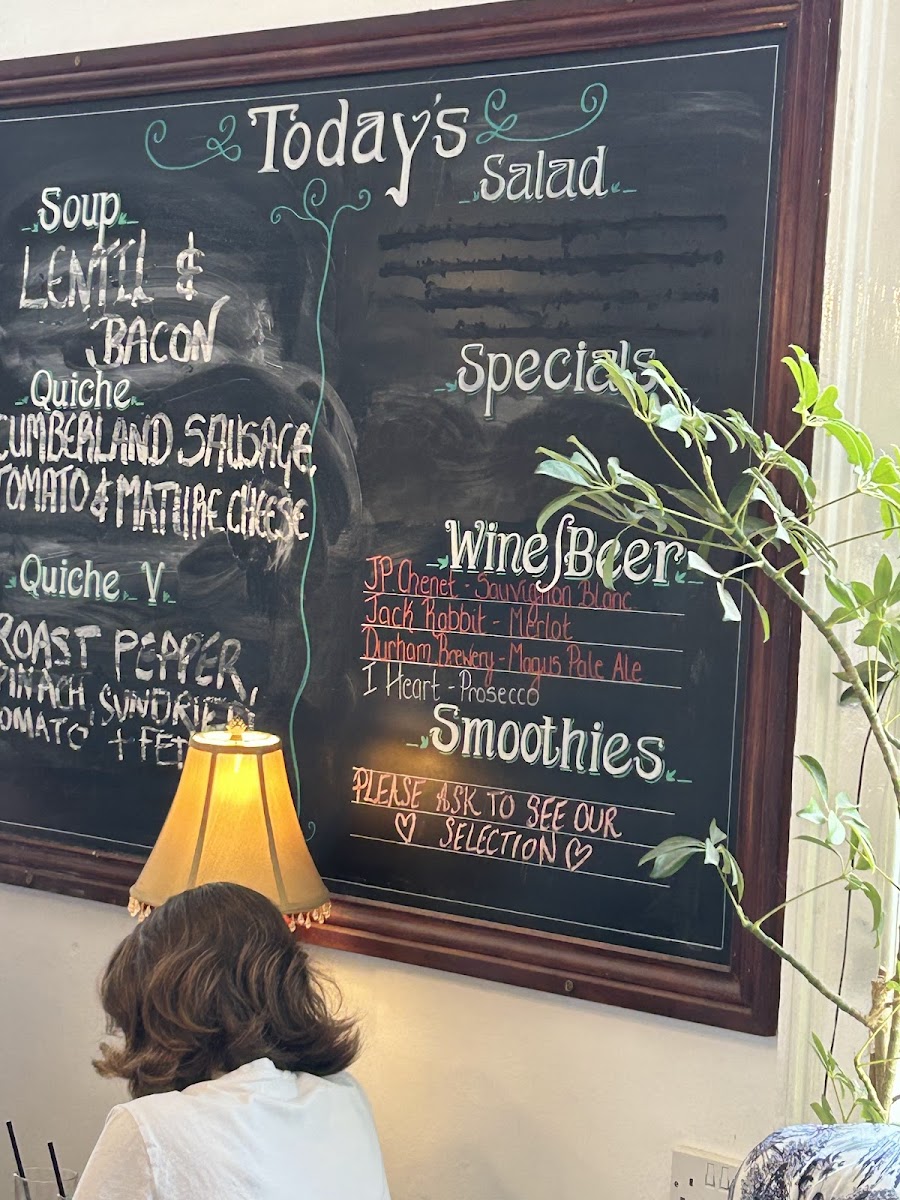 Today's
Soup
LENTIL &
BACON
Quiche
CUMBERLAND SAUSAGE
TOMATO & MATURE CHEESE
Quiche V
ROAST PEPPER
SUNDRIED
+
Salad
Specials
Wine/Beer
JP Chenet - Sauvignon Blanc
Jack Rabbit - Merlot
Durham Brewery - Magus Pale Ale
I Heart - Prosecco
Smoothies
PLEASE ASK TO SEE OUR
SELECTION